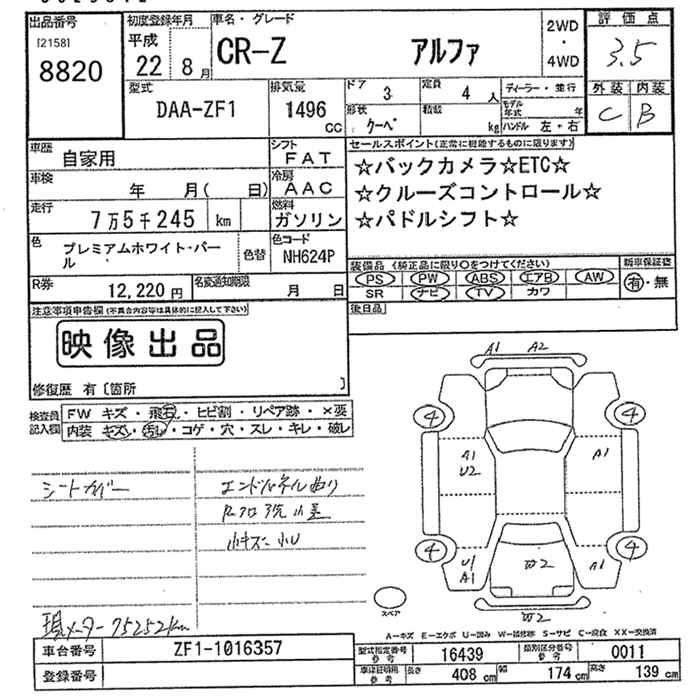 出品番号
[2158]
8820
初度登録年月
平成
22年 8月
車名・グレード
CR-Z アルファ
2WD
・
4WD
評価点
3.5
外装 内装
C B
型式
DAA-ZF1
排気量
1496
CC
ドア 3
定員 4 人
形状 クーペ
積載 kg
ディーラー・並行
モデル年式 年
ハンドル 左・右
車歴
自家用
シフト
FAT
車検
年 月( 日)
冷房
AAC
走行
7万5千245 km
燃料
ガソリン
色
プレミアムホワイト・パール
色替
色コード
NH624P
R券
12,220円
名変通知期限
月 日
セールスポイント(正常に機能するものに限ります)
☆バックカメラ☆ETC☆
☆クルーズコントロール☆
☆パドルシフト☆
装備品 (純正品に限り○をつけてください)
PS PW ABS エアB AW
SR ナビ TV カワ
新車保証書
有・無
後日品
注意事項申告欄(不具合内容等は具体的に記入して下さい)
映像出品
修復歴 有〔箇所 〕
検査員記入欄
FW キズ・飛石・ヒビ割・リペア跡・×要
内装 キズ・汚れ・コゲ・穴・スレ・キレ・破レ
シートカバー
エンドパネル曲り
小キズ 小U
現メーター 75252km
A1 A2
4 4
A1
U2
A1
4 4
U1
A1
W2
A1
W2
スペア
A-キズ E-エクボ U-凹み W-補修跡 S-サビ C-腐食 XX-交換済
車台番号
ZF1-1016357
登録番号
型式指定番号
参考
16439
類別区分番号
参考
0011
車体証明用
参考
長さ
408 cm
幅
174 cm
高さ
139 cm